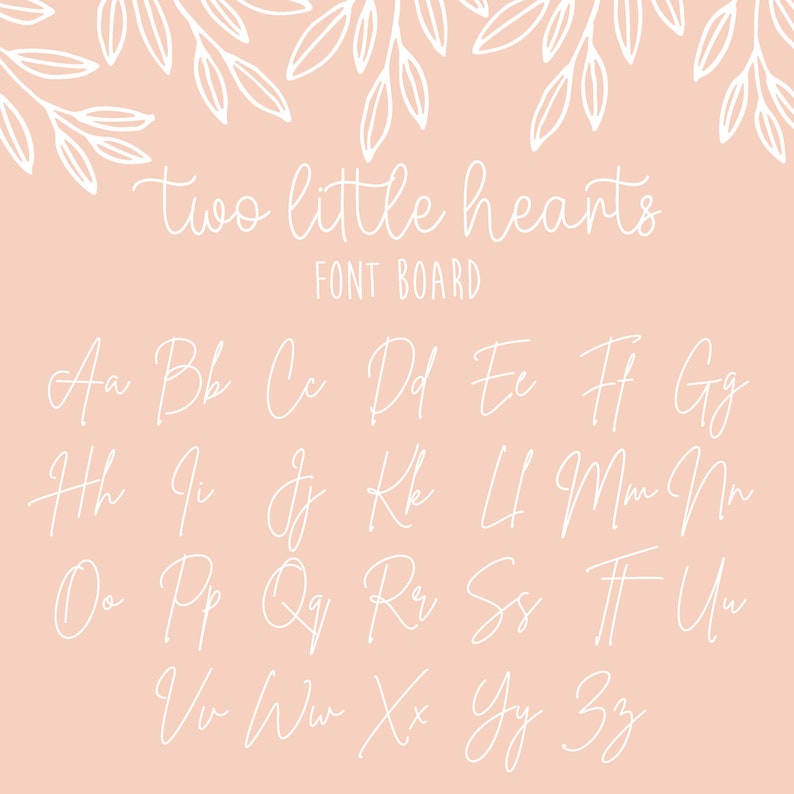 two little hearts
FONT BOARD
Aa Bb Cc Dd Ee Ff Gg
Hh Ii Jj Kk Ll Mm Nn
Oo Pp Qq Rr Ss Tt Uu
Vv Ww Xx Yy Zz